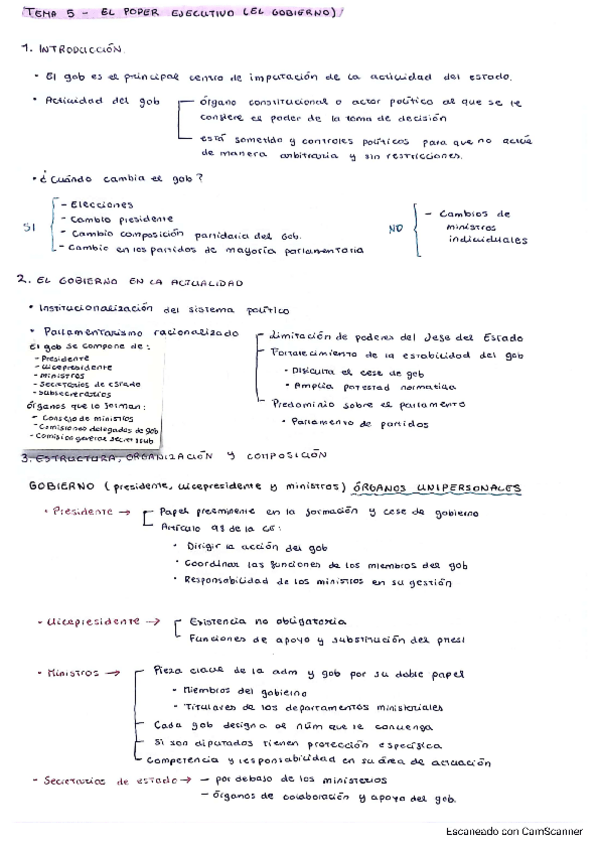 TEMA 5 - EL PODER EJECUTIVO (EL GOBIERNO)
1. INTRODUCCIÓN
• El gob es el principal centro de imputación de la actividad del estado.
• Actividad del gob
órgano constitucional o actor político al que se le
confiere el poder de la toma de decisión
está sometido y controles políticos para que no actúe
de manera arbitraria y sin restricciones.
• ¿Cuándo cambia el gob?
SI
- Elecciones
- Cambio presidente
- Cambio composición partidaria del Gob.
- Cambio en los partidos de mayoría parlamentaria
NO
- Cambios de
ministros
individuales
2. EL GOBIERNO EN LA ACTUALIDAD
• Institucionalización del sistema político
• Parlamentarismo racionalizado
Limitación de poderes del Jefe del Estado
Fortalecimiento de la estabilidad del gob
• Dificulta el cese de gob
• Amplia potestad normativa
Predominio sobre el parlamento
• Parlamento de partidos
El gob se compone de:
- Presidente
- Vicepresidente
- Ministros
- Secretarios de estado
- Subsecretarios
Órganos que lo forman:
- Consejo de ministros
- Comisiones delegadas de gob
- Comisión general secret sub
3. ESTRUCTURA, ORGANIZACIÓN Y COMPOSICIÓN
GOBIERNO (presidente, vicepresidente y ministros) ÓRGANOS UNIPERSONALES
• Presidente →
Papel preeminente en la formación y cese de gobierno
Artículo 98 de la CE:
• Dirigir la acción del gob
• Coordinar las funciones de los miembros del gob
• Responsabilidad de los ministros en su gestión
- Vicepresidente →
Existencia no obligatoria
Funciones de apoyo y substitución del presi
• Ministros →
Pieza clave de la adm y gob por su doble papel
- Miembros del gobierno
- Titulares de los departamentos ministeriales
Cada gob designa al núm que le convenga
Si son diputados tienen protección específica
Competencia y responsabilidad en su área de actuación
- Secretarios de estado → - por debajo de los ministerios
- órganos de colaboración y apoyo del gob.
Escaneado con CamScanner